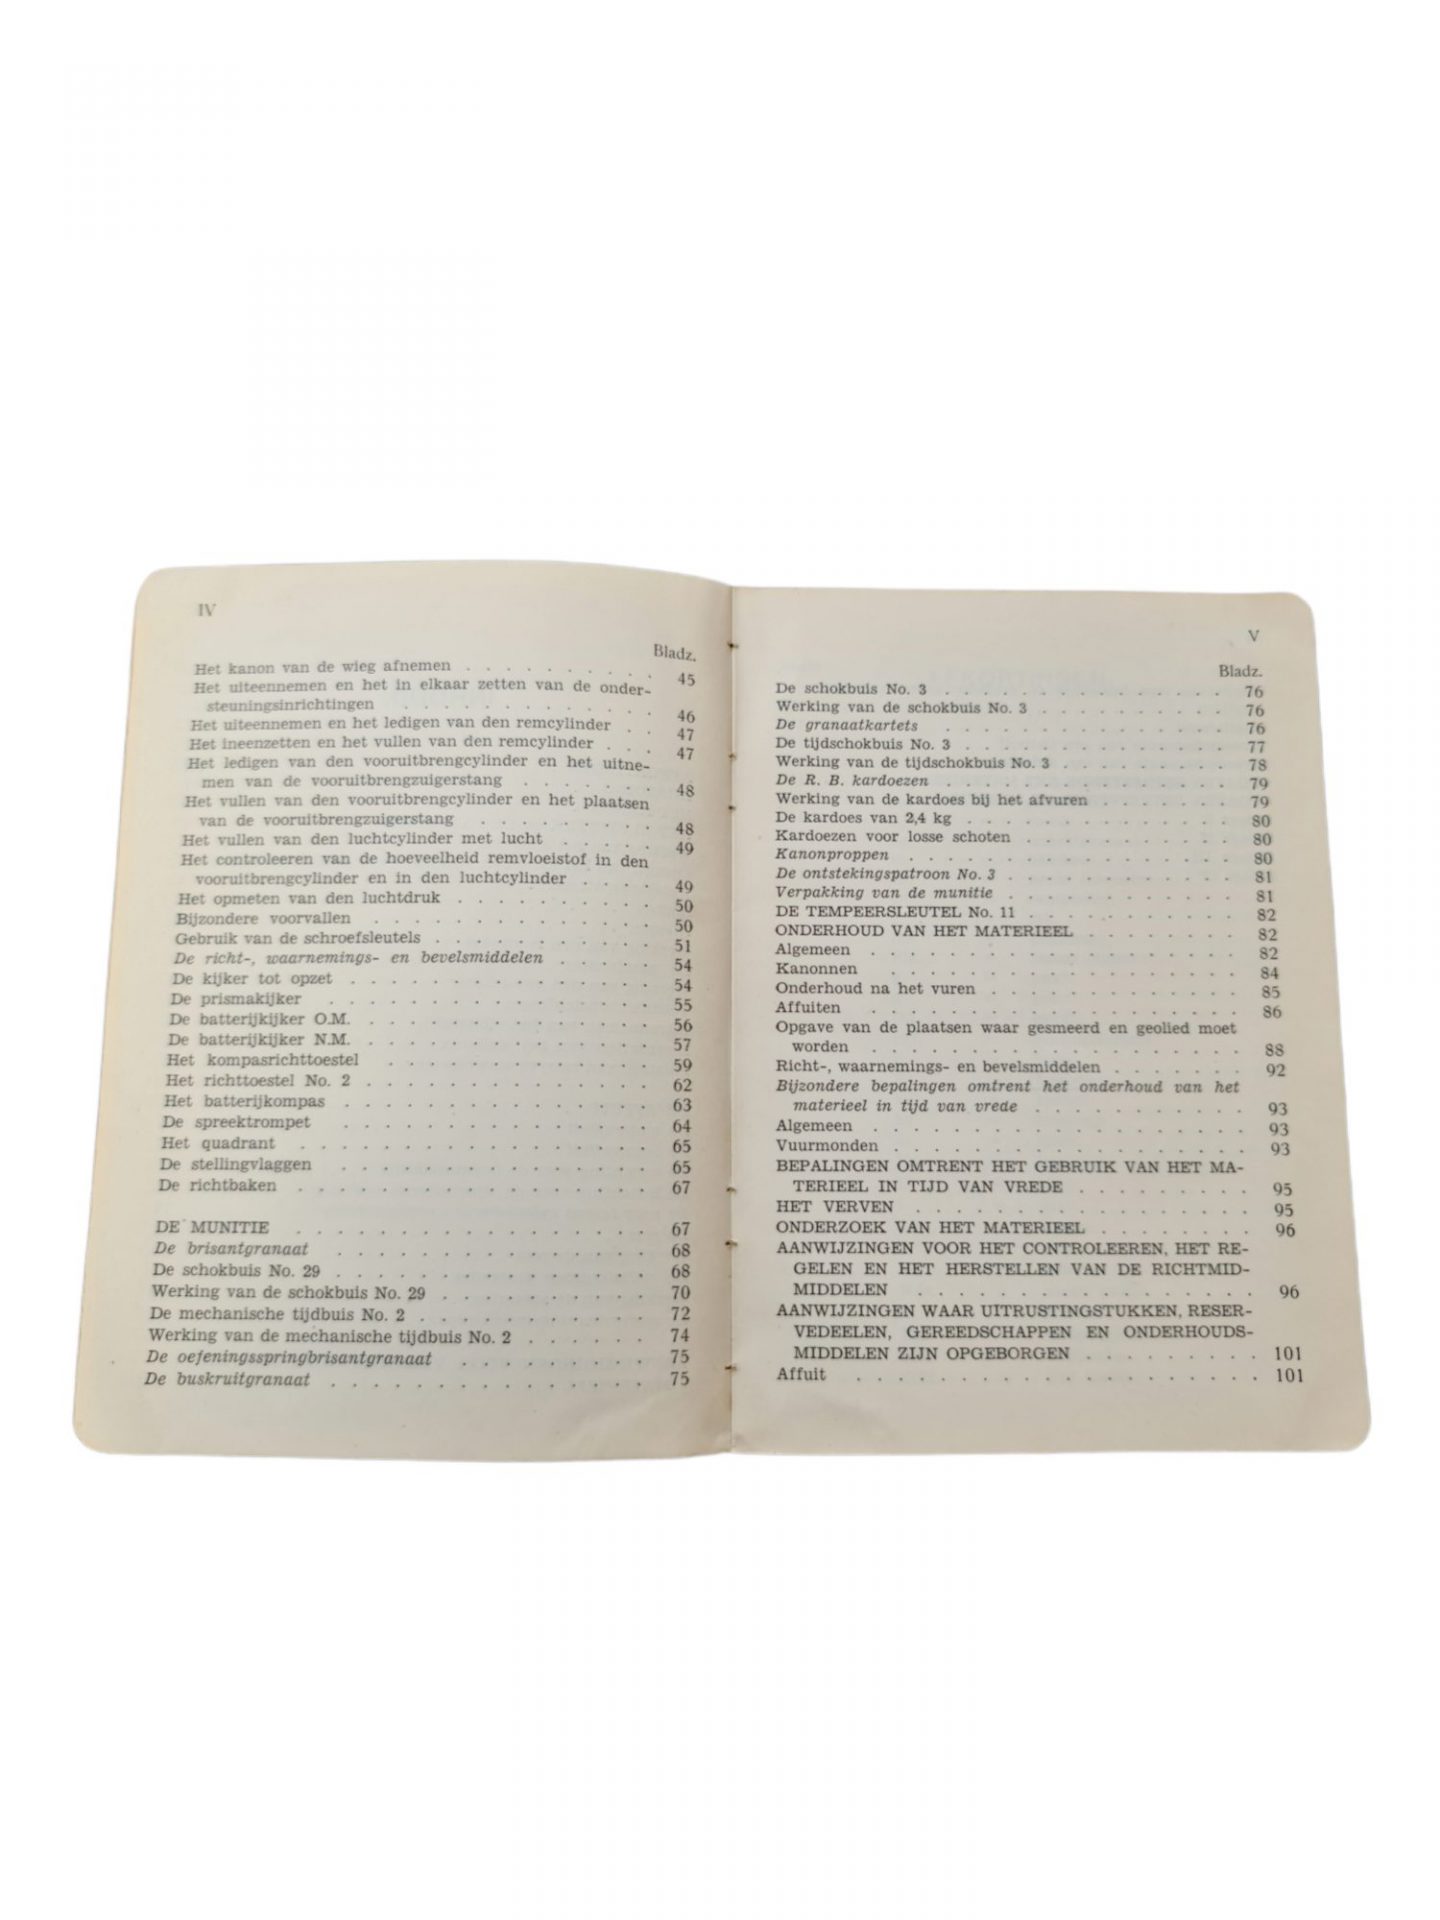 IV
Bladz.
Het kanon van de wieg afnemen . . . . . . . . 45
Het uiteennemen en het in elkaar zetten van de onder-
steuningsinrichtingen . . . . . . . . . . 46
Het uiteennemen en het ledigen van den remcylinder . . 47
Het ineenzetten en het vullen van den remcylinder . . . 47
Het ledigen van den vooruitbrengcylinder en het uitne-
men van de vooruitbrengzuigerstang . . . . . . 48
Het vullen van den vooruitbrengcylinder en het plaatsen
van de vooruitbrengzuigerstang . . . . . . . 48
Het vullen van den luchtcylinder met lucht . . . . . 49
Het controleeren van de hoeveelheid remvloeistof in den
vooruitbrengcylinder en in den luchtcylinder . . . . 49
Het opmeten van den luchtdruk . . . . . . . . 50
Bijzondere voorvallen . . . . . . . . . . . 50
Gebruik van de schroefsleutels . . . . . . . . . 51
De richt-, waarnemings- en bevelsmiddelen . . . . . 54
De kijker tot opzet . . . . . . . . . . . . 54
De prismakijker . . . . . . . . . . . . . 55
De batterijkijker O.M. . . . . . . . . . . . . 56
De batterijkijker N.M. . . . . . . . . . . . . 57
Het kompasrichttoestel . . . . . . . . . . . 59
Het richttoestel No. 2 . . . . . . . . . . . . 62
Het batterijkompas . . . . . . . . . . . . . 63
De spreektrompet . . . . . . . . . . . . . 64
Het quadrant . . . . . . . . . . . . . . . 65
De stellingvlaggen . . . . . . . . . . . . . 65
De richtbaken . . . . . . . . . . . . . . . 67
DE MUNITIE . . . . . . . . . . . . . . . 67
De brisantgranaat . . . . . . . . . . . . . 68
De schokbuis No. 29 . . . . . . . . . . . . . 68
Werking van de schokbuis No. 29 . . . . . . . . . 70
De mechanische tijdbuis No. 2 . . . . . . . . . . 72
Werking van de mechanische tijdbuis No. 2 . . . . . . 74
De oefeningsspringbrisantgranaat . . . . . . . . 75
De buskruitgranaat . . . . . . . . . . . . . 75
V
Bladz.
De schokbuis No. 3 . . . . . . . . . . . . . 76
Werking van de schokbuis No. 3 . . . . . . . . . 76
De granaatkartets . . . . . . . . . . . . . 76
De tijdschokbuis No. 3 . . . . . . . . . . . . 77
Werking van de tijdschokbuis No. 3 . . . . . . . . 78
De R. B. kardoezen . . . . . . . . . . . . . 79
Werking van de kardoes bij het afvuren . . . . . . 79
De kardoes van 2,4 kg . . . . . . . . . . . . 80
Kardoezen voor losse schoten . . . . . . . . . . 80
Kanonproppen . . . . . . . . . . . . . . . 80
De ontstekingspatroon No. 3 . . . . . . . . . . 81
Verpakking van de munitie . . . . . . . . . . . 81
DE TEMPEERSLEUTEL No. 11 . . . . . . . . . . 82
ONDERHOUD VAN HET MATERIEEL . . . . . . . . 82
Algemeen . . . . . . . . . . . . . . . . 82
Kanonnen . . . . . . . . . . . . . . . . 84
Onderhoud na het vuren . . . . . . . . . . . 85
Affuiten . . . . . . . . . . . . . . . . . 86
Opgave van de plaatsen waar gesmeerd en geolied moet
worden . . . . . . . . . . . . . . . . 88
Richt-, waarnemings- en bevelsmiddelen . . . . . . . 92
Bijzondere bepalingen omtrent het onderhoud van het
materieel in tijd van vrede . . . . . . . . . . 93
Algemeen . . . . . . . . . . . . . . . . . 93
Vuurmonden . . . . . . . . . . . . . . . . 93
BEPALINGEN OMTRENT HET GEBRUIK VAN HET MA-
TERIEEL IN TIJD VAN VREDE . . . . . . . . . 95
HET VERVEN . . . . . . . . . . . . . . . . 95
ONDERZOEK VAN HET MATERIEEL . . . . . . . . 96
AANWIJZINGEN VOOR HET CONTROLEEREN, HET RE-
GELEN EN HET HERSTELLEN VAN DE RICHTMID-
MIDDELEN . . . . . . . . . . . . . . . . 96
AANWIJZINGEN WAAR UITRUSTINGSTUKKEN, RESER-
VEDEELEN, GEREEDSCHAPPEN EN ONDERHOUDS-
MIDDELEN ZIJN OPGEBORGEN . . . . . . . . . 101
Affuit . . . . . . . . . . . . . . . . . . 101